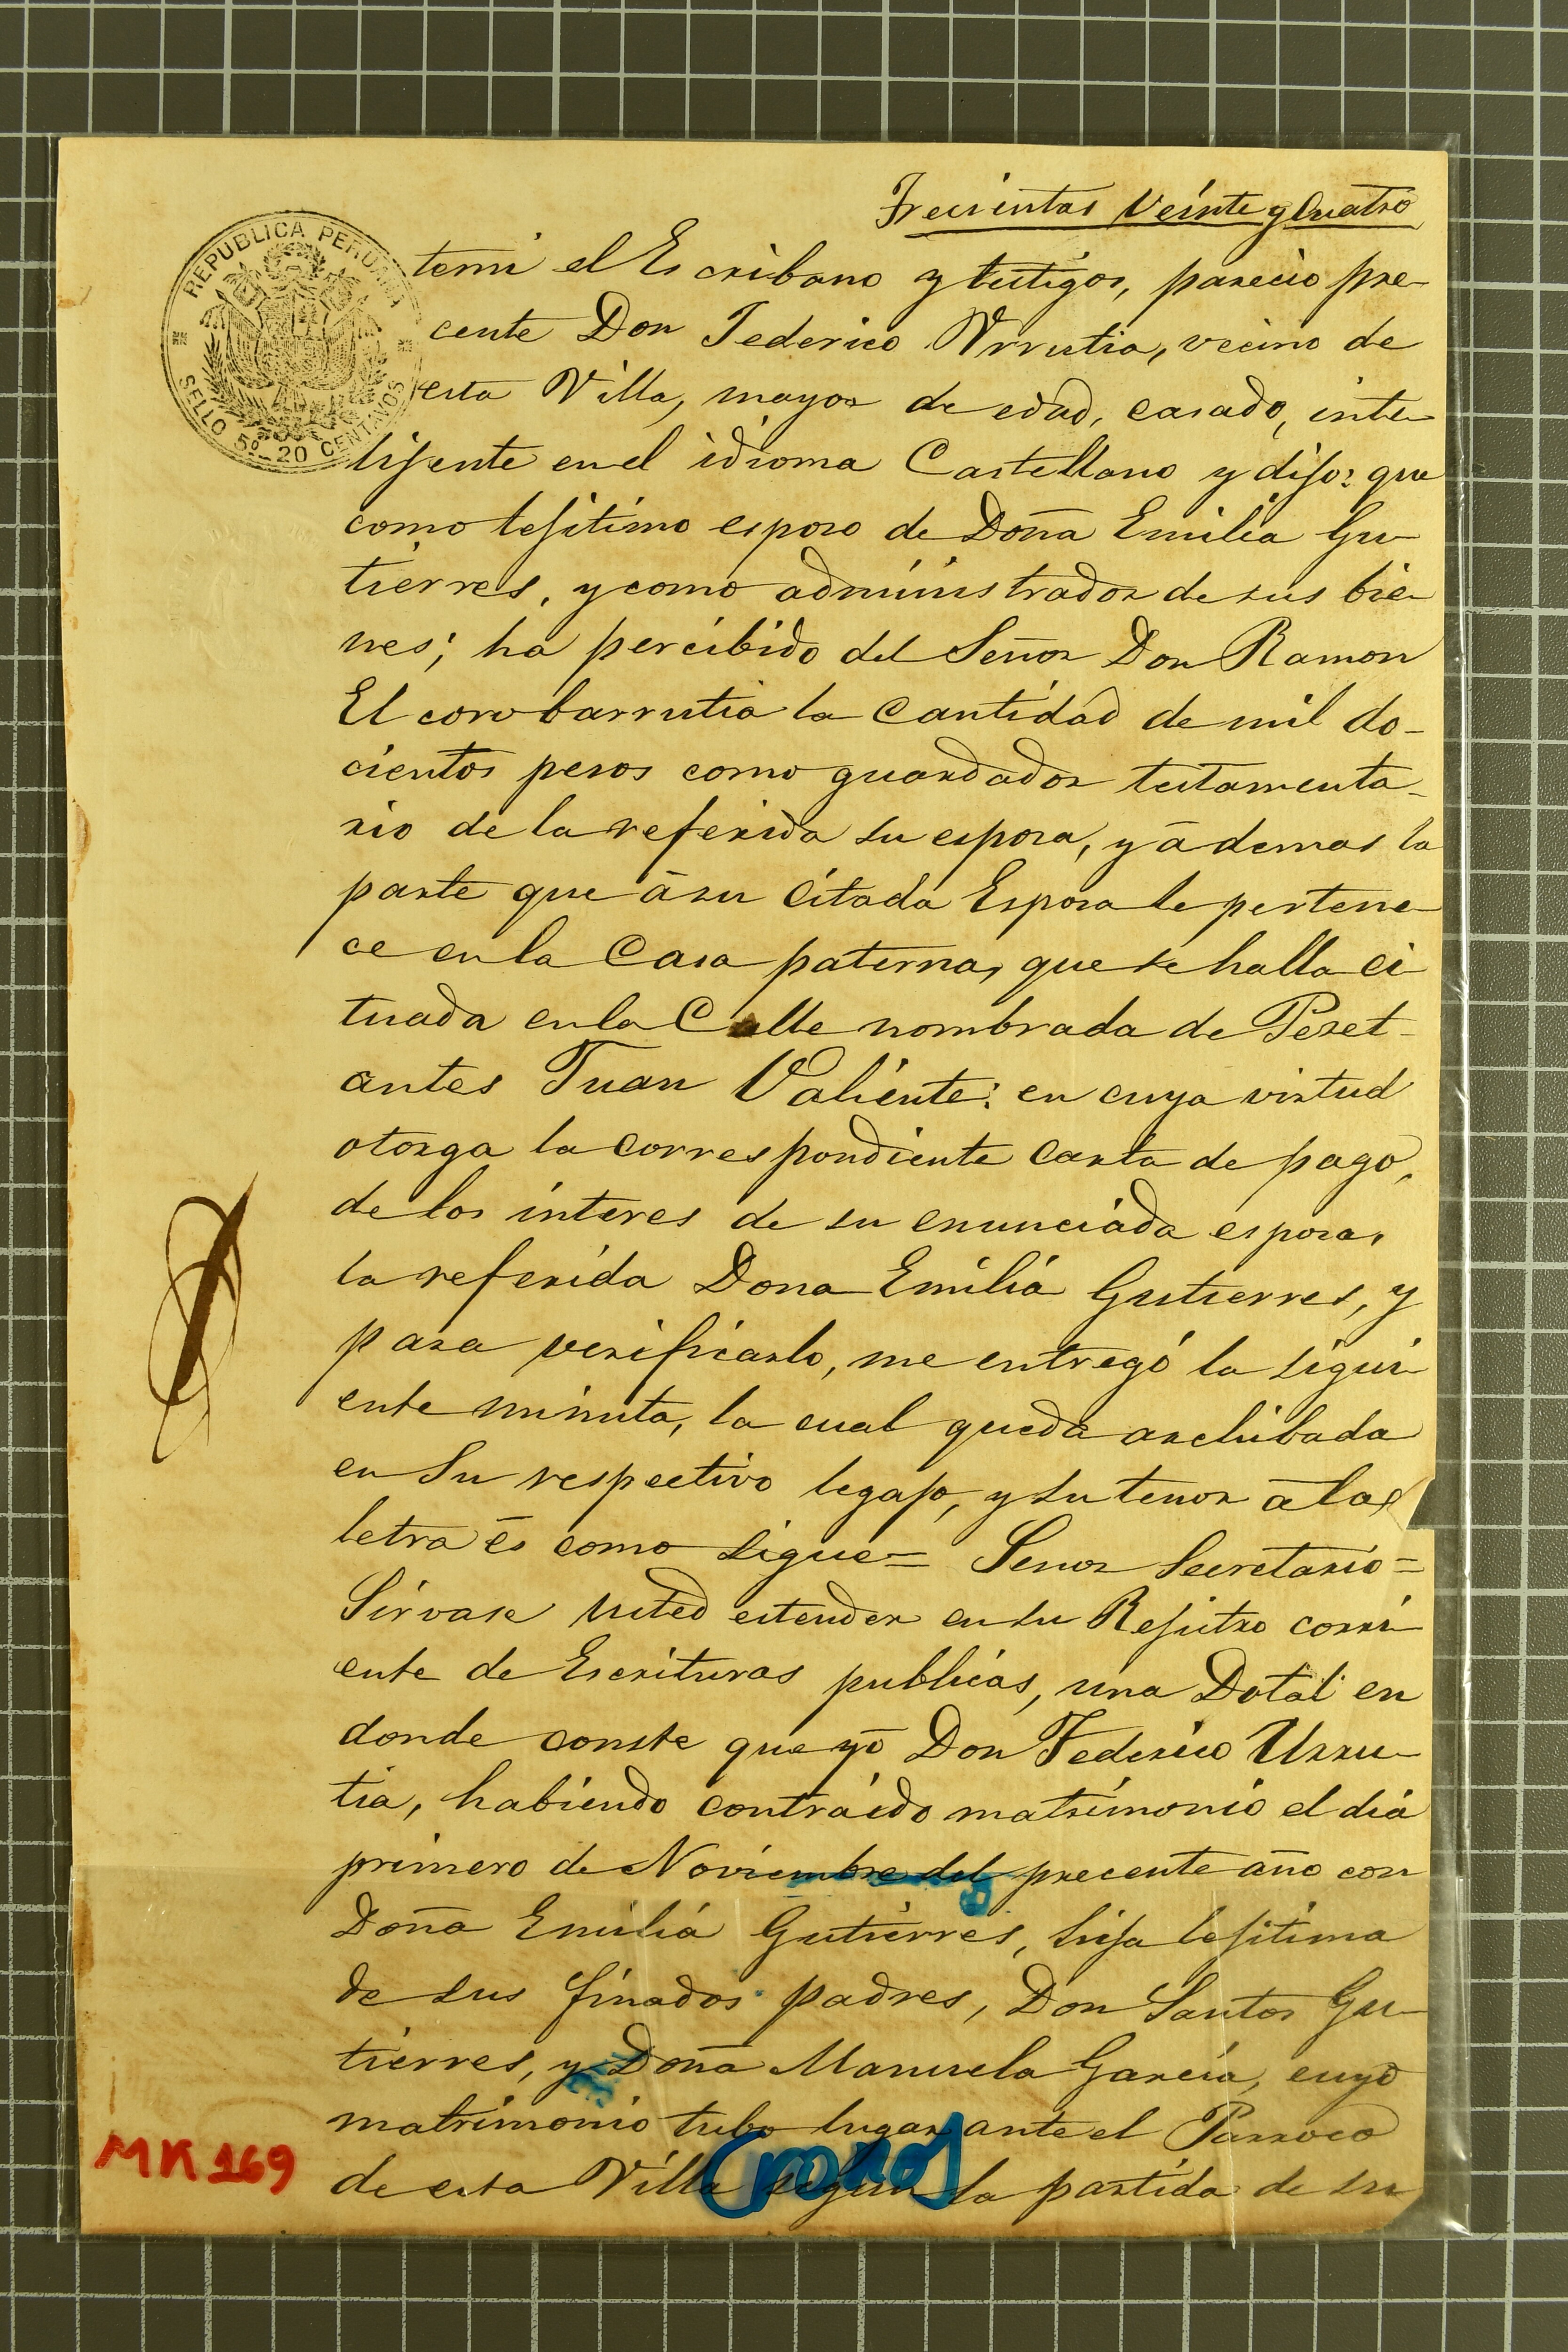 Trecientas Veinte y Cuatro
REPUBLICA PERUANA
SELLO 5º_20 CENTAVOS
temi el Escribano y testigos, parecio pre-
cente Don Federico Urrutia, vecino de
esta Villa, mayor de edad, casado, inte-
lijente en el idioma Castellano y dijo: que
como lejitimo esposo de Doña Emilia Gu-
tierres, y como administrador de sus bie-
nes; ha percibido del Señor Don Ramon
Elcorobarrutia la Cantidad de mil do-
cientos pesos como guardador testamenta-
rio de la referida su esposa, y ademas la
parte que á su Citada Esposa le pertene-
ce en la Casa paterna, que se halla ci-
tuada en la Calle nombrada de Peret
antes Juan Valiente: en cuya virtud
otorga la correspondiente Carta de pago,
de los interes de su enunciada esposa,
la referida Dona Emilia Gutierres, y
para verificarlo, me entregó la sigui-
ente minuta, la cual queda archibada
en Su respectivo legajo, y su tenor á la
letra és como sigue= Senor Secretario=
Sirvase Usted estender en su Rejistro corri-
ente de Escrituras publicas, una Dotal en
donde conste que yó Don Federico Urru-
tia, habiendo contraido matrimonio el dia
primero de Noviembre del precente año con
Doña Emilia Gutierres, hija lejitima
de sus finados padres, Don Santos Gu-
tierres, y Doña Manuela Garcia, cuyo
matrimonio tubo lugar ante el Parroco
de esta Villa segun la partida de su
MK169